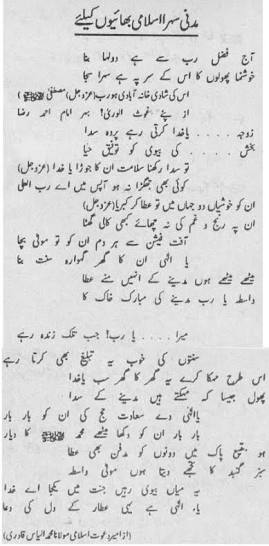 مدنی سہرا اسلامی بھائیوں کیلئے
آج فضل رب سے ہے دولہا بنا
خوشنما پھولوں کا اس کے سر پہ ہے سہرا سجا
اس کی شادی خانہ آبادی ہو رب (عزوجل) مصطفیٰ ﷺ
از پئے غوث الوریٰ بہر امام احمد رضا
زوجہ ..... یاخدا کرتی رہے پردہ سدا
بخش ..... کی بیوی کو توفیق حیا
تو سدا رکھنا سلامت ان کا جوڑا یا خدا (عزوجل)
کوئی بھی جھگڑا نہ ہو آپس میں اے رب العلی
ان کو خوشیاں دو جہاں میں تو عطا کر کبریا (عزوجل)
ان پہ رنج و غم کی نہ چھائے کبھی کالی گھٹا
آفت فیشن سے ہر دم ان کو تو مولی بچا
یا الٰہی ان کا گھر گہوارہ سنت بنا
میٹھے میٹھے ہوں مدینے کے انہیں منے عطا
واسطہ یا رب مدینے کی مبارک خاک کا
میرا .... یا رب! جب تلک زندہ رہے
سنتوں کی خوب یہ تبلیغ بھی کرتا رہے
اس طرح مہکا کرے یہ گھر کا گھر سب یاخدا
پھول جیسا کہ مہکتے ہیں مدینے کے سدا
یاالٰہی دے سعادت حج کی ان کو بار بار
بار بار ان کو دکھا میٹھے محمد ﷺ کا دیار
ہو بقیع پاک میں دونوں کو مدفن بھی عطا
سبز گنبد کا تجھے دیتا ہوں مولی واسطہ
یہ میاں بیوی رہیں جنت میں یکجا اے خدا
یا الٰہی ہے یہی عطار کے دل کی دعا
(از امیر دعوت اسلامی مولانا محمد الیاس قادری)